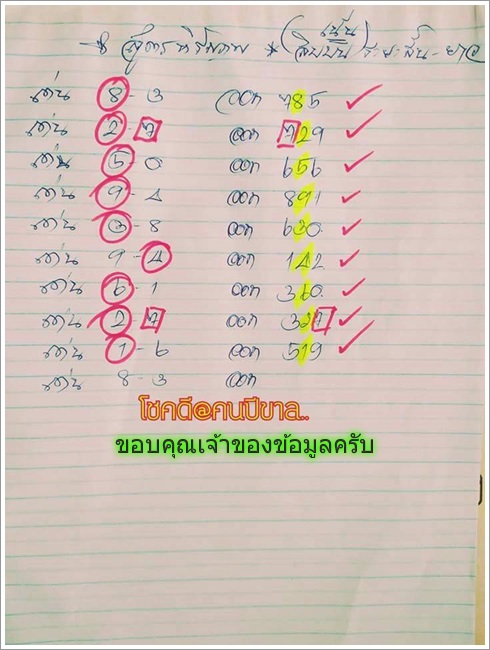 สูตรทรัพเทพ * (เน้น สิบบน) ระยะสั้น-ยาว
เด่น 8-3 ออก 785 ✓
เด่น 2-7 ออก 729 ✓
เด่น 5 0 ออก 656 ✓
เด่น 9-4 ออก 891 ✓
เด่น 3-8 ออก 630 ✓
เด่น 9-4 ออก 142 ✓
เด่น 6-1 ออก 360 ✓
เด่น 2-7 ออก 327 ✓
เด่น 1-6 ออก 519 ✓
เด่น 8-3 ออก
โชคดี@คนปีขาล..
ขอบคุณเจ้าของข้อมูลครับ